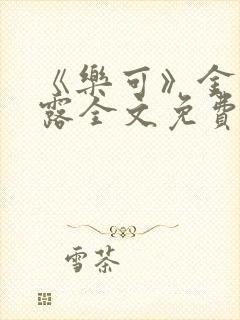 《樂可》金
露全文免費
雪茶